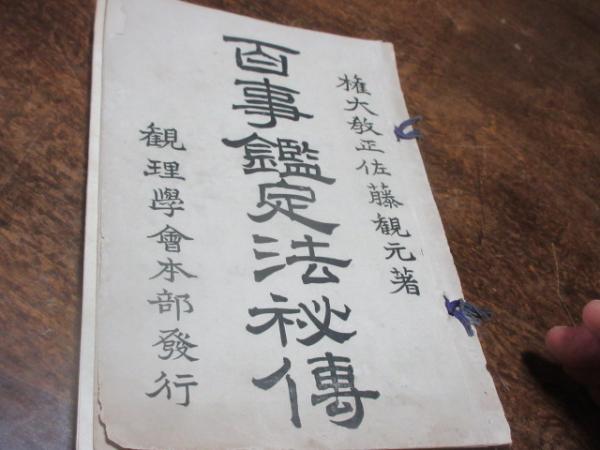 権大教正佐藤観元著
百事鑑定法祕傳
観理學會本部發行